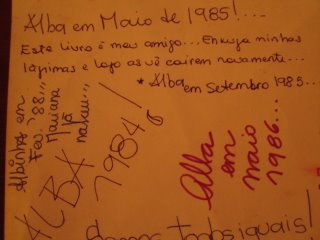 Alba em Maio de 1985!...
Este livro é meu amigo... Enxuga minhas
lágrimas e logo as vê caírem novamente...
* Alba em Setembro 1985...
Albinha em
Fev. '88...
Mariana
já
nasceu...
ALBA
1984!
Alba
em
maio
1986...
Somos todos iguais!